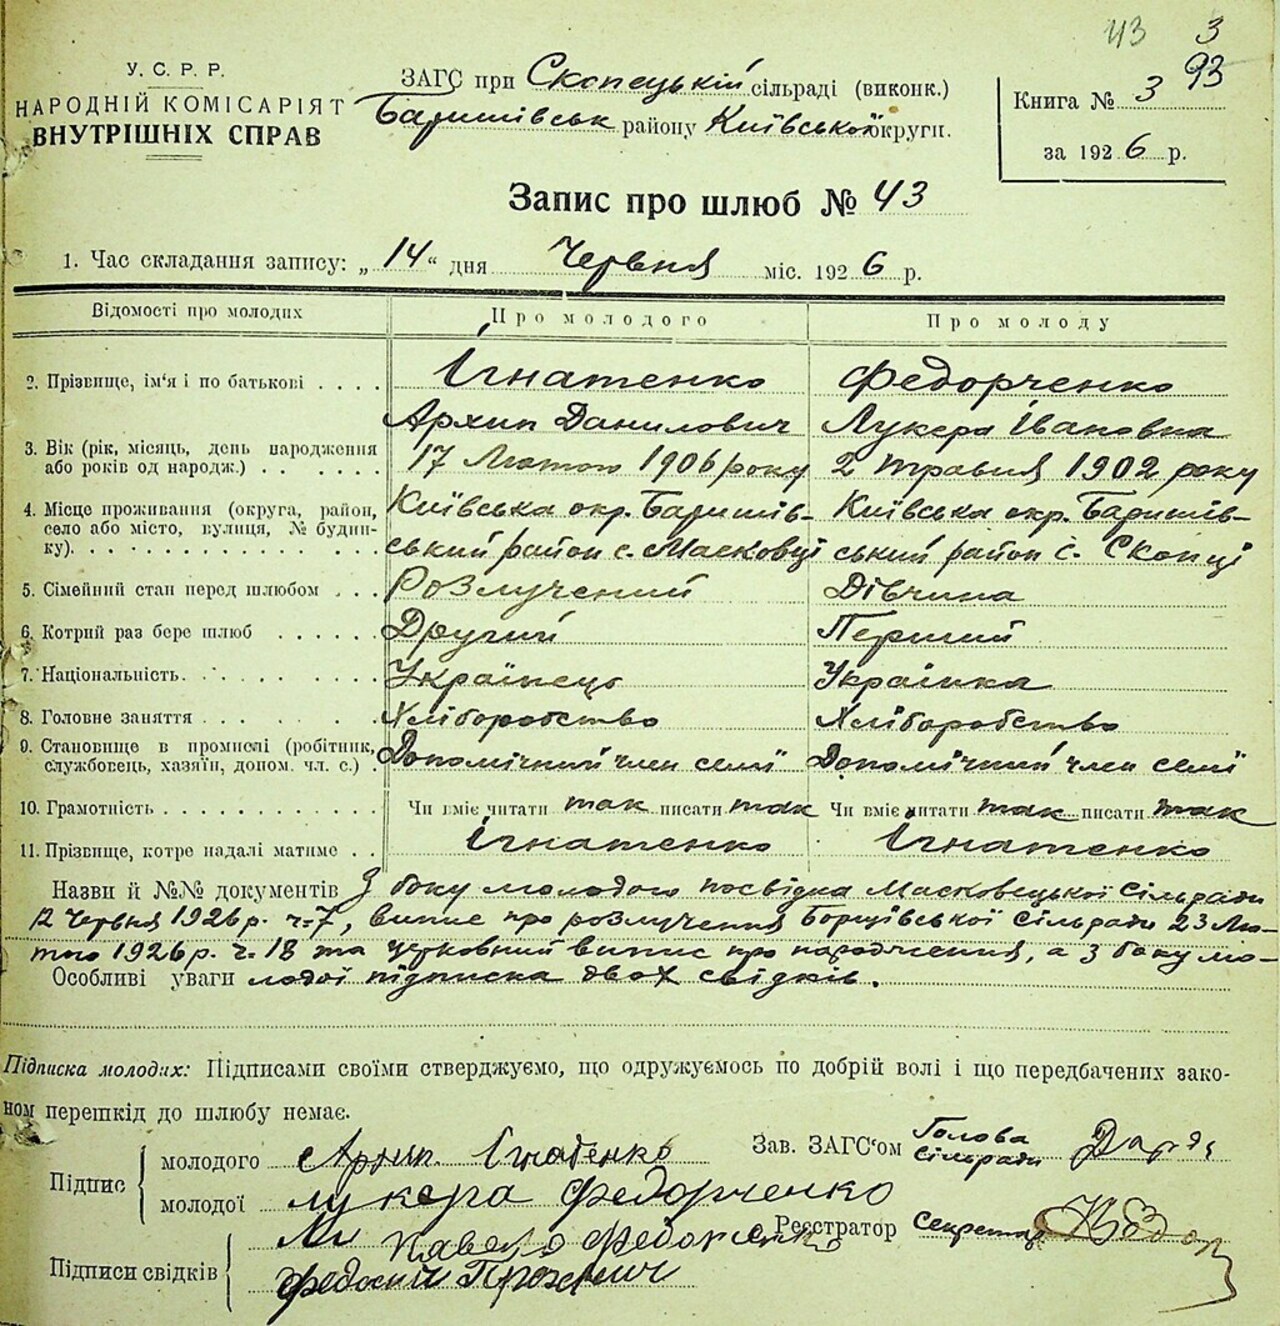 43 3
93
У. С. Р. Р.
НАРОДНІЙ КОМІСАРІЯТ
ВНУТРІШНІХ СПРАВ
ЗАГС при Скопецькій сільраді (виконк.)
Баришівськ району Київської округи.
Книга № 3
за 1926 р.
Запис про шлюб № 43
1. Час складання запису: „14“ дня Червня міс. 1926 р.
Відомості про молодих Про молодого Про молоду
2. Прізвище, ім'я і по батькові . . . . Ігнатенко Федорченко
Архип Данилович Лукера Івановна
3. Вік (рік, місяць, день народження або років од народж.) . . . . . . 17 Лютого 1906 року 2 травня 1902 року
4. Місце проживання (округа, район, село або місто, вулиця, № будинку). . . . Київська окр. Баришів- Київська окр. Баришів-
ський район с. Масковці ський район с. Скопці
5. Сімейний стан перед шлюбом . . . Розлучений Дівчина
6. Котрий раз бере шлюб . . . . . . Другий Перший
7. Національність. . . . . . . . . Українець Українка
8. Головне заняття . . . . . . . . Хліборобство Хліборобство
9. Становище в промислі (робітник, службовець, хазяїн, допом. чл. с.) . Допомічний член семї Допомічний член семї
10. Грамотність . . . . . . . . . . . Чи вміє читати так писати так Чи вміє читати так писати так
11. Прізвище, котре надалі матиме . . Ігнатенко Ігнатенко
Назви й №№ документів З боку молодого посвідка Масковецької Сільради
12 Червня 1926 р. ч. 7, випис про розлучення Борщівської Сільради 23 Лю-
того 1926 р. ч. 18 та церковний випис про народження, а з боку мо-
Особливі уваги лодої підписка двох свідків.
Підписка молодих: Підписами своїми стверджуємо, що одружуємось по добрій волі і що передбачених зако-
ном перешкід до шлюбу немає.
Підпис молодого Архип Ігнатенко Зав. ЗАГС'ом Голова Сільради
молодої лукера федорченко
Реєстратор Секретар
Підписи свідків